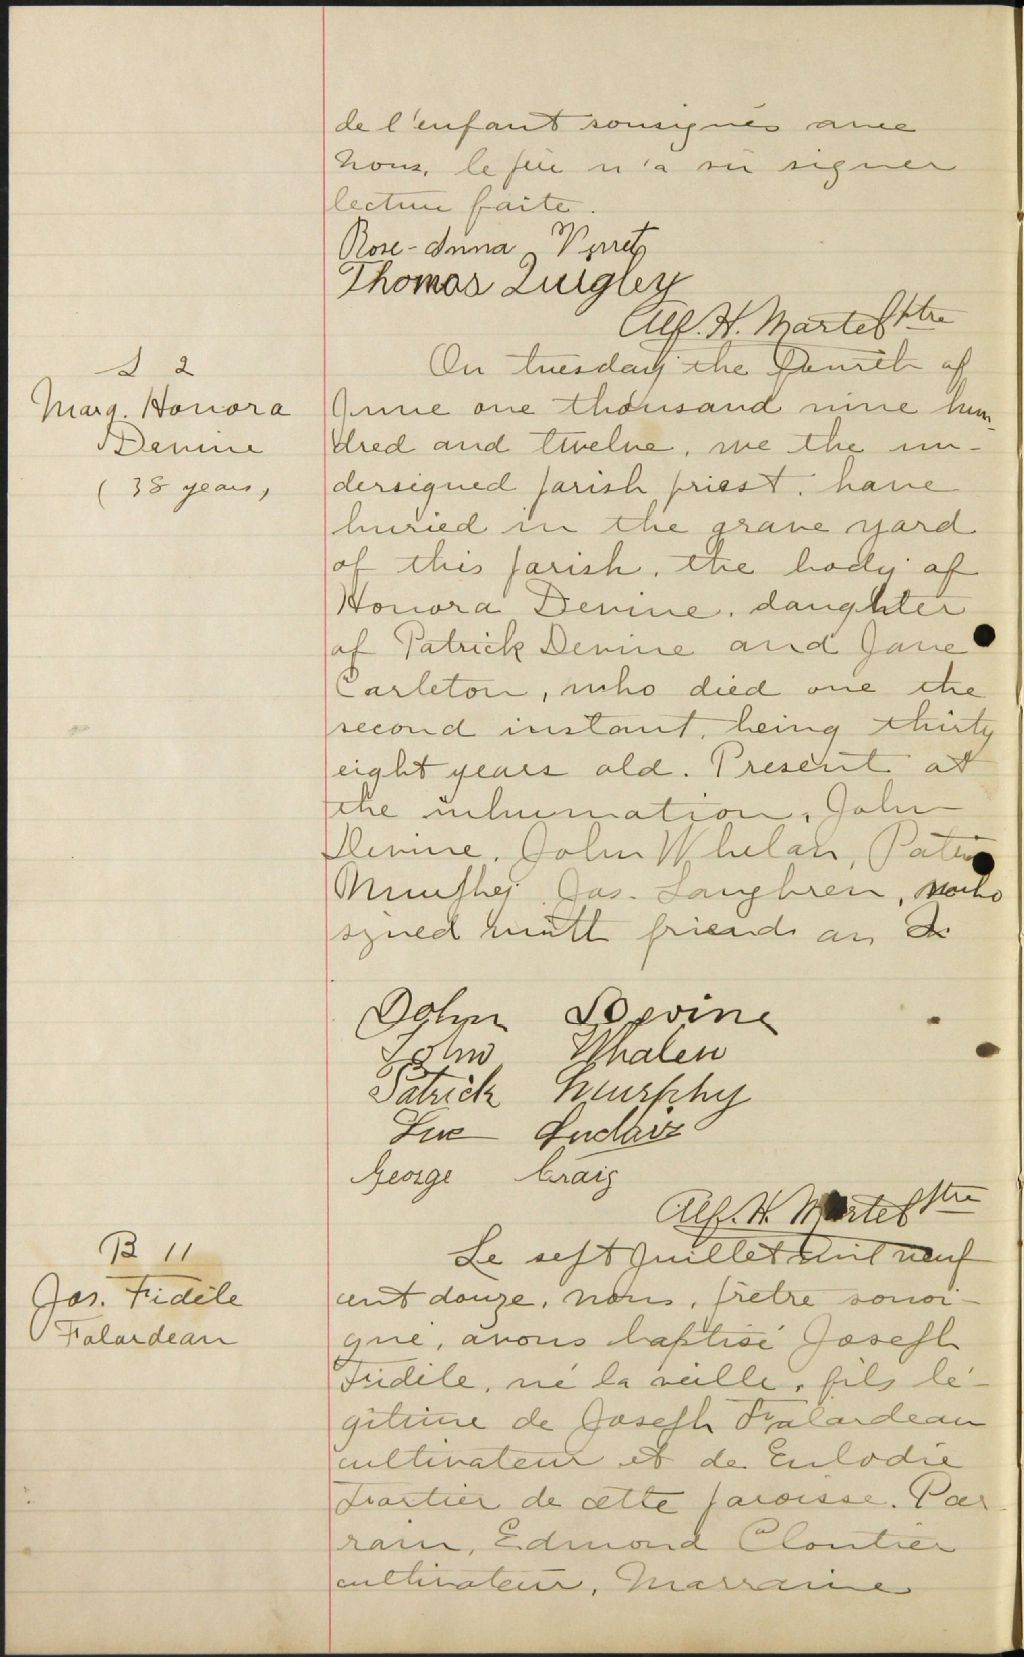 de l'enfant sousignés avec
nous, le père n'a su signer
lecture faite.
Rose-Anna Verret
Thomas Quigley
Alf. H. Martel Ptre
S 2
Marg. Honora
Devine
( 38 years,
On tuesday the fourth of
June one thousand nine hun-
dred and twelve, we the un-
dersigned parish priest, have
buried in the grave yard
of this parish, the body of
Honora Devine, daughter
of Patrick Devine and Jane
Carleton, who died one the
second instant, being thirty
eight years old. Present at
the inhumation, John
Devine, John Whelan, Patri
Murphy Jas. Langhren, who
signed with friends an
John Devine
John Whalen
Patrick Murphy
Luc
George Craig
Alf. H. Martel Ptre
B 11
Jos. Fidèle
Falardeau
Le sept Juillet mil neuf
cent douze, nous, prêtre sousi-
gné, avons baptisé Joseph
Fidèle, né la veille, fils lé-
gitime de Joseph Falardeau
cultivateur et de Eulodie
Trartier de cette paroisse. Par
rain, Edmond Cloutier
cultivateur, Marraine